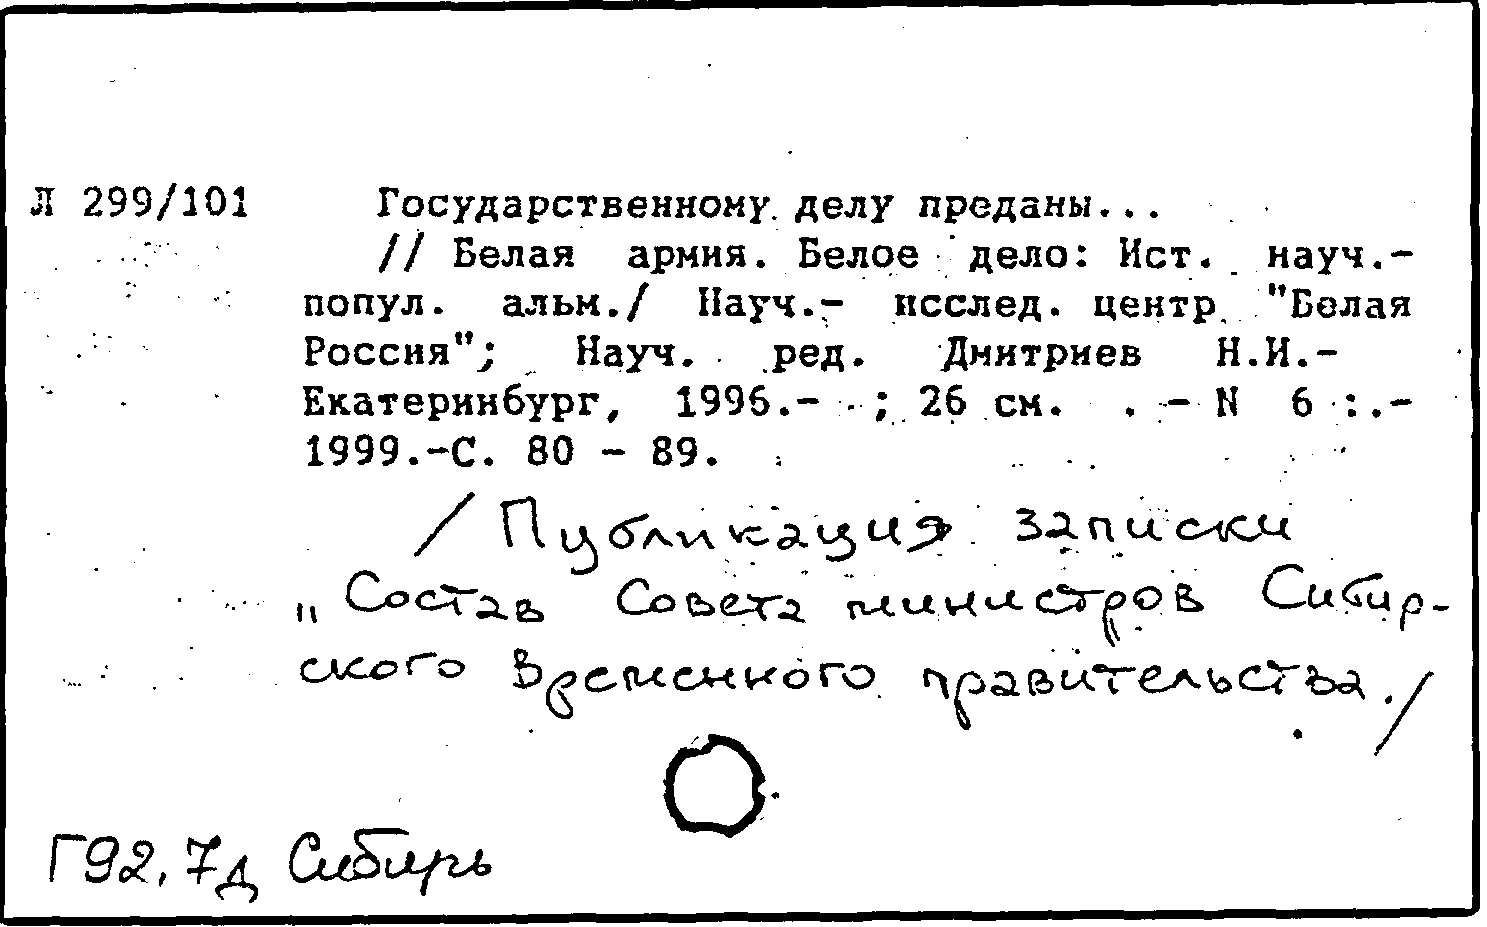 Л 299/101 Государственному делу преданы...
// Белая армия. Белое дело: Ист. науч.-
попул. альм./ Науч.- исслед. центр "Белая
Россия"; Науч. ред. Дмитриев Н.И.-
Екатеринбург, 1996.- ; 26 см. . - N 6 :.-
1999.-С. 80 - 89.
/ Публикация записки
„Состав Совета министров Сибир-
ского Временного правительства./
Г92,7д Сибирь